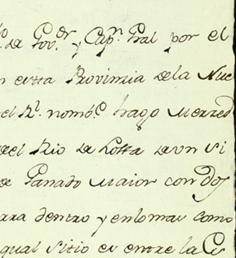 de Gov.or y Cap.n Gral por el
n esta Provincia de la Nue
el Rl. nombe. hago Merred
del Rio de Lotta de vn si
de Ganado Maior con dos
ara dentro y en lomas como
qual sitio es entre la Ci